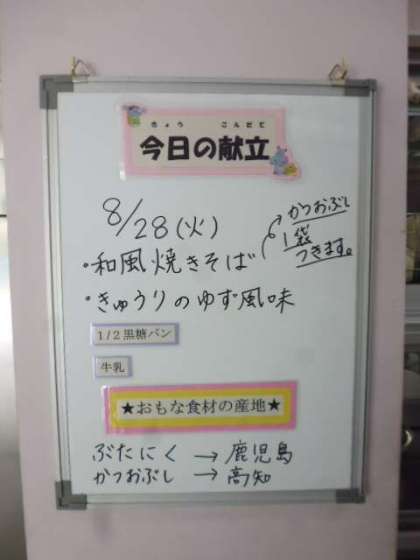 きょう こんだて
今日の献立
8/28(火)
・和風焼きそば → かつおぶし
1袋
つきます。
・きゅうりのゆず風味
1/2黒糖パン
牛乳
★おもな食材の産地★
ぶたにく → 鹿児島
かつおぶし → 高知